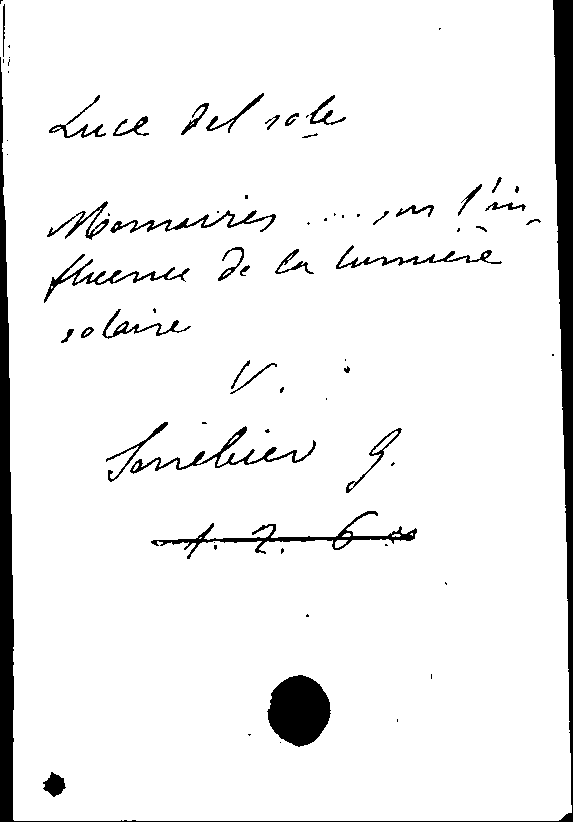 Luce del sole
Memoires .... sur l'in-
fluence de la lumière
solaire
V.
Senebier G.
1. 2. 6